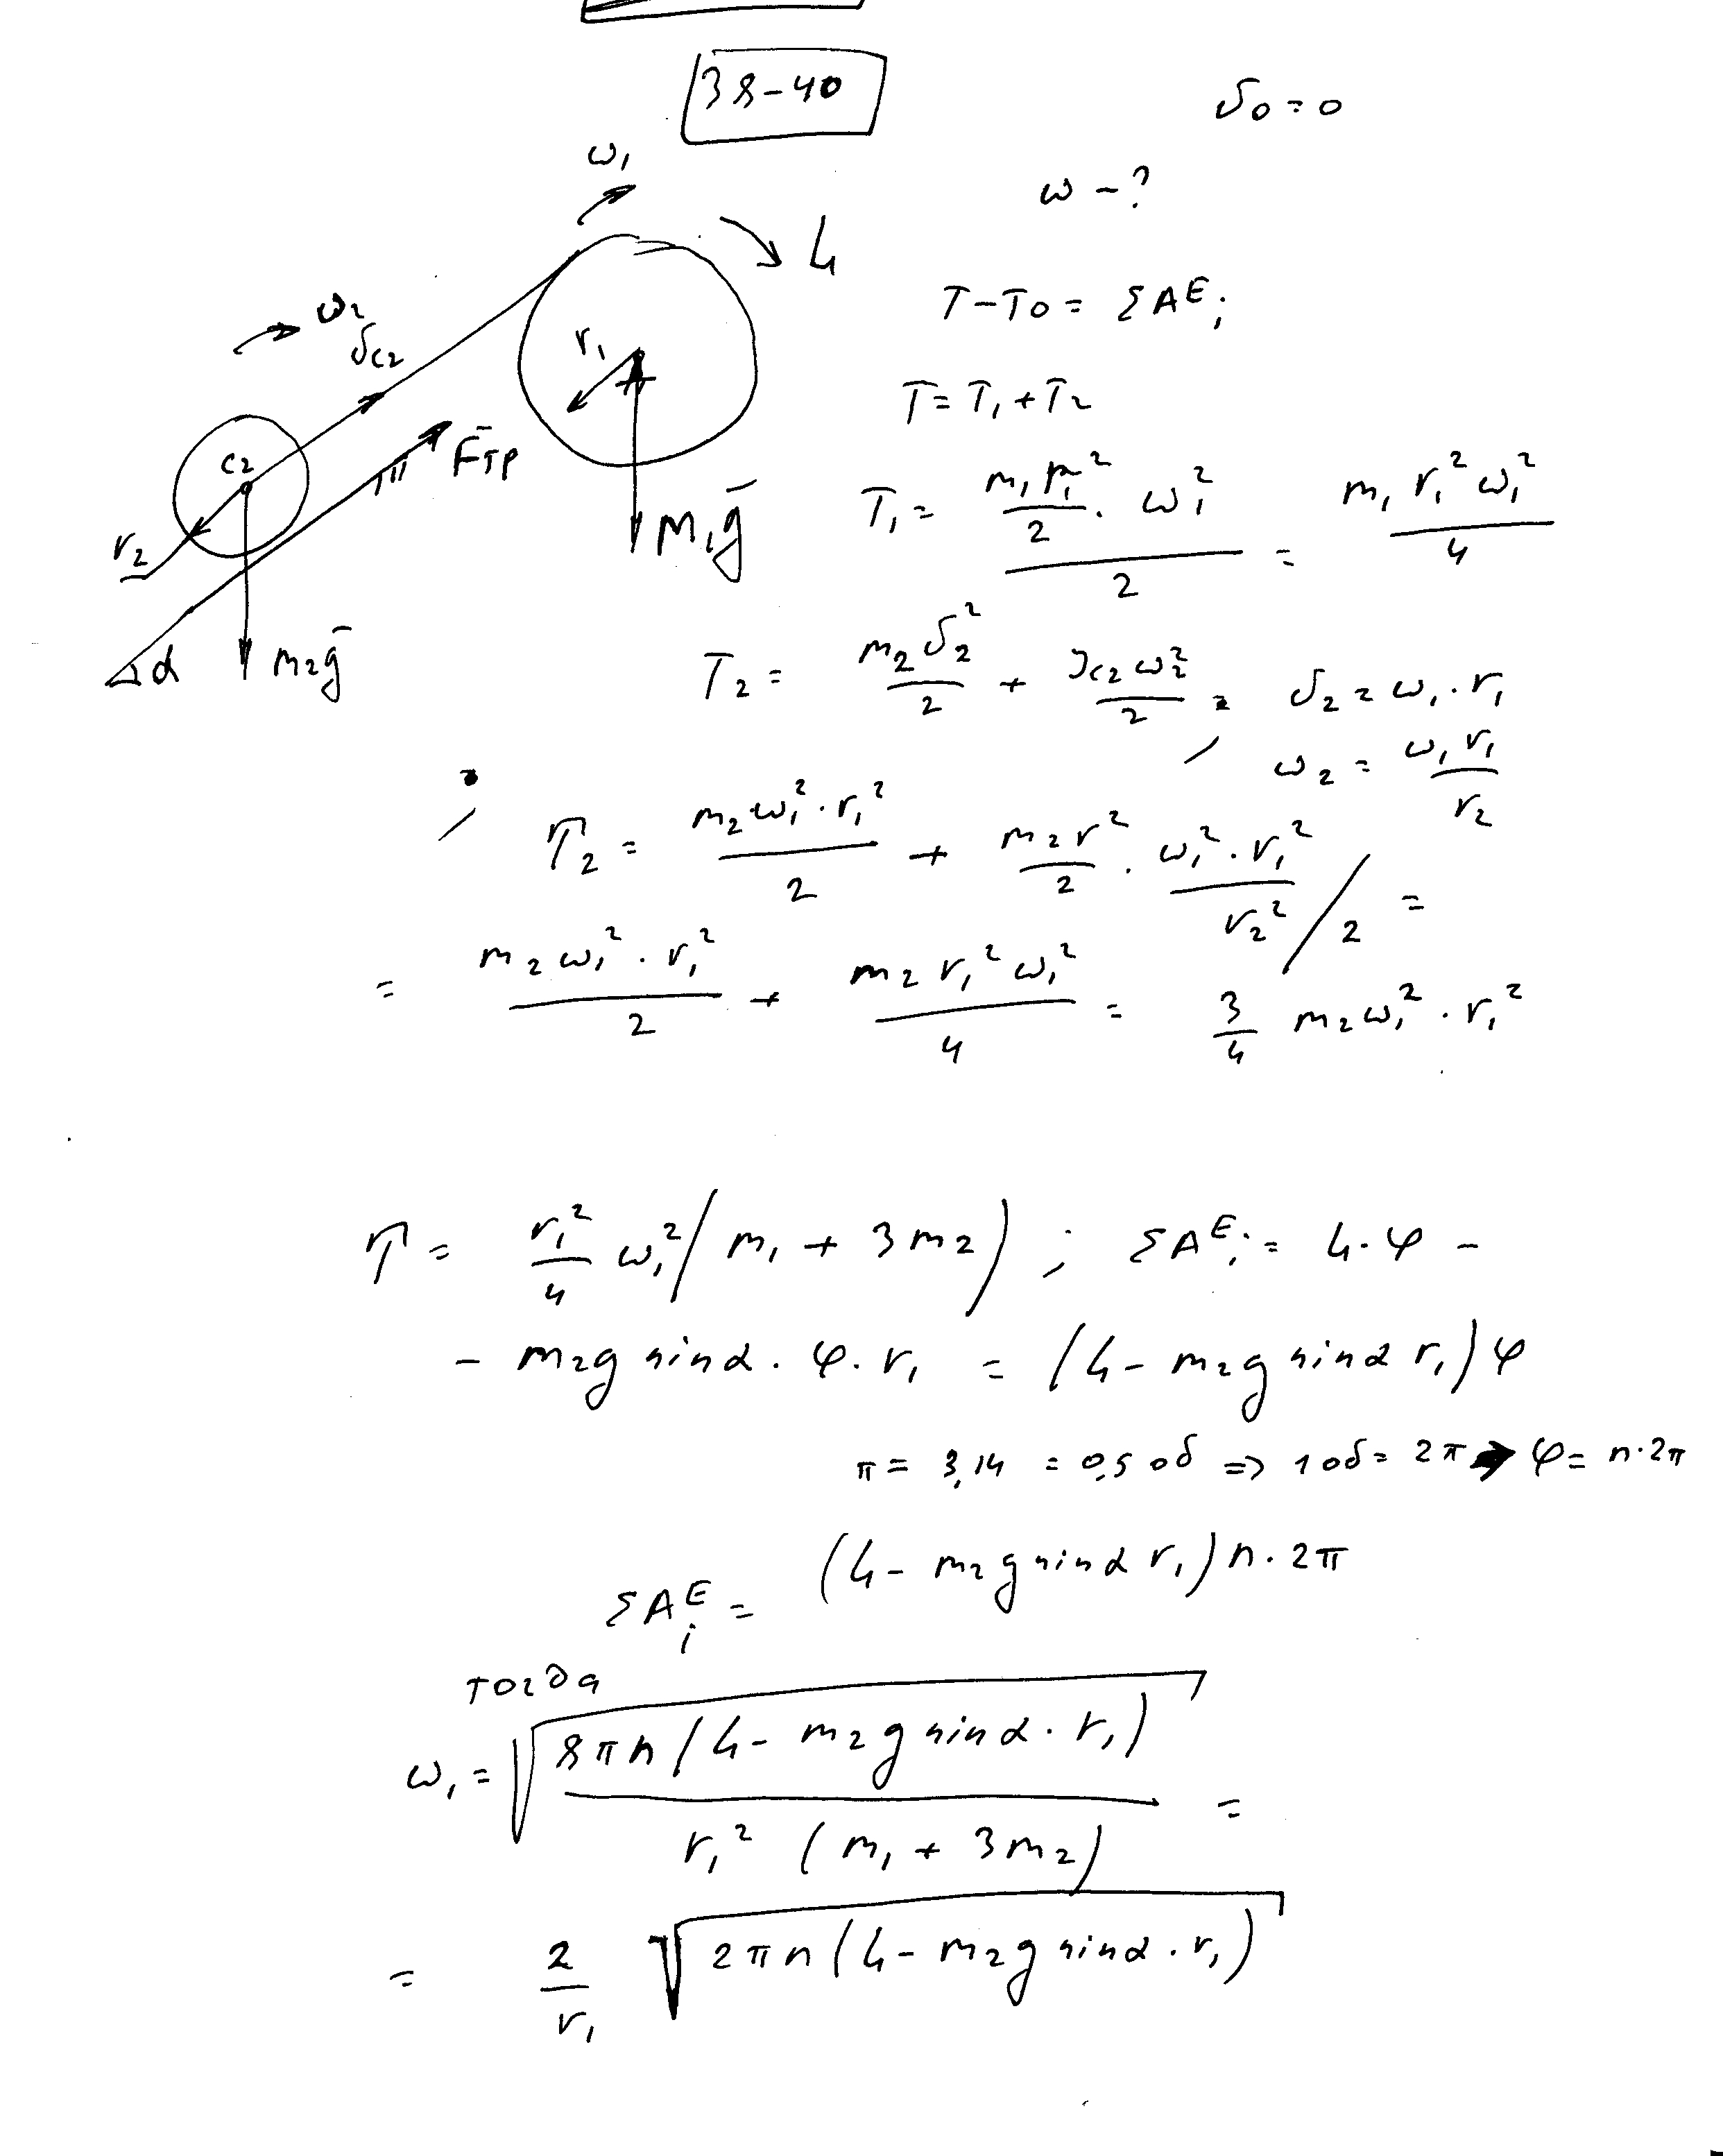 38-40
υ₀ = 0
ω - ?
ω₁
L₁
T - T₀ = ΣAᴱᵢ
ω₂
υc₂
r₁
T = T₁ + T₂
c₂
F̄тр
T₁ = (m₁r₁²/2 · ω₁²)/2 = m₁r₁²ω₁²/4
r₂
M₁ḡ
α
m₂ḡ
T₂ = m₂υ₂²/2 + Jc₂ω₂²/2 ; υ₂ = ω₁·r₁
ω₂ = ω₁r₁/r₂
; T₂ = m₂ω₁²·r₁²/2 + m₂r²/2 · ω₁²·r₁²/r₂² / 2 =
= m₂ω₁²·r₁²/2 + m₂r₁²ω₁²/4 = 3/4 m₂ω₁²·r₁²
T = r₁²/4 ω₁² (m₁ + 3m₂) ; ΣAᴱᵢ = L·φ -
- m₂g sinα · φ · r₁ = (L - m₂g sinα r₁) φ
π = 3,14 = 0,5 об => 1 об = 2π → φ = n·2π
ΣAᴱᵢ = (L - m₂g sinα r₁) n·2π
тогда
ω₁ = √(8πn (L - m₂g sinα · r₁) / r₁² (m₁ + 3m₂)) =
= 2/r₁ √(2πn (L - m₂g sinα · r₁))